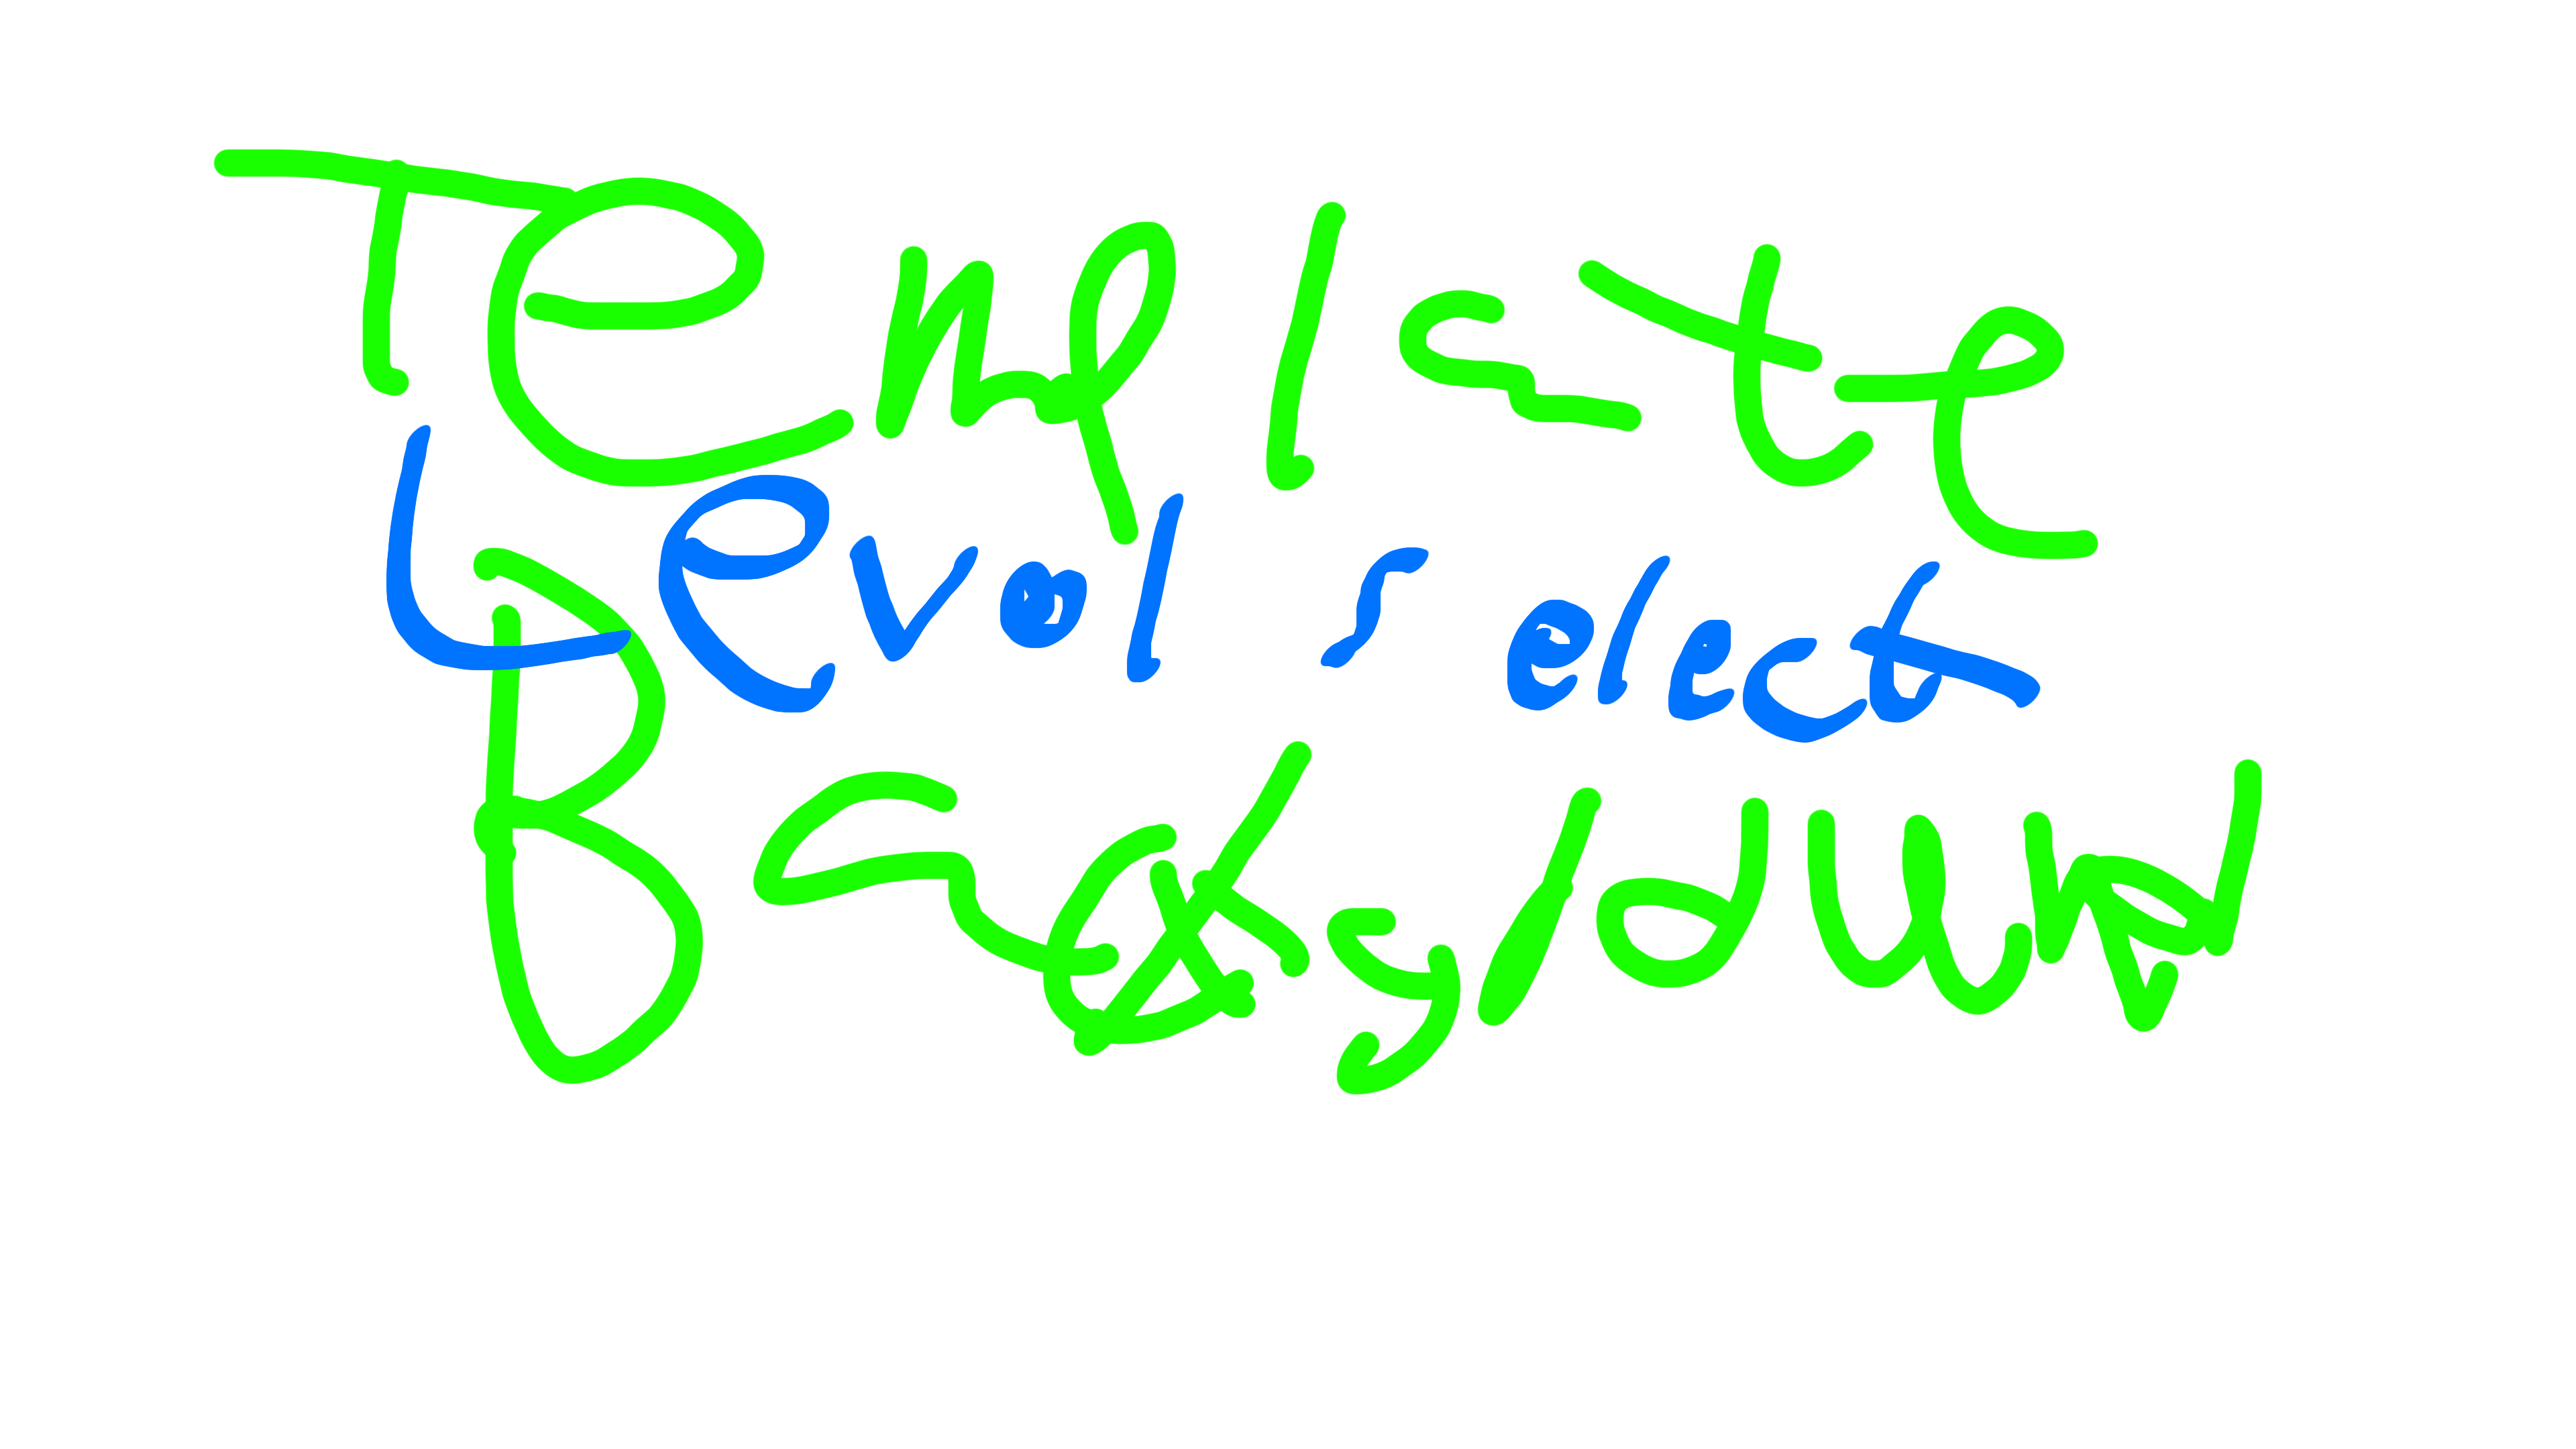 Template
Level select
Background